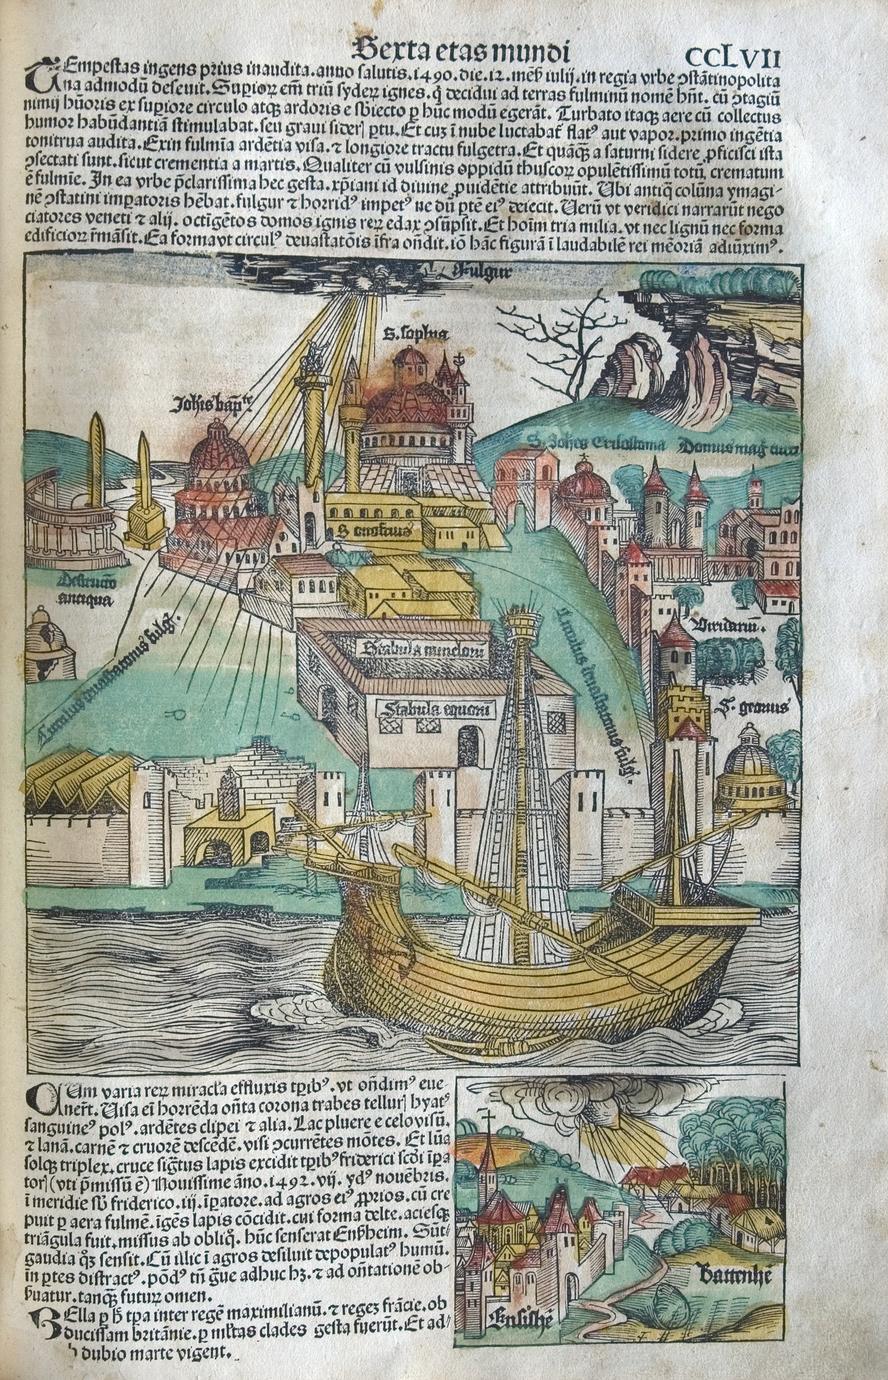 Sexta etas mundi CCLVII
TEmpestas ingens prius inaudita.anno salutis.1490.die.12.meñ iulij.in regia vrbe ↄstãtinopolita
na admodũ deseuit.Supioꝝ em̃ triũ syderꝝ ignes.q̃ decidui ad terras fulminũ nomẽ hñt.cũ ↄtagiũ
nimij hũoris ex supiore circulo atqꝫ ardoris e sbiecto ꝑ huc modũ egerãt. Turbato itaqꝫ aere cũ collectus
humor habũdantiã stimulabat.seu graui siderꝭ ꝑtu.Et cuꝫ ĩ nube luctabat̃ flatꝰ aut vapor.primo ingẽtia
tonitrua audita.Exin fulmĩa ardẽtia visa.⁊ longiore tractu fulgetra.Et quãqꝫ a saturni sidere ꝓficisci ista
ↄsectati sunt.sicut crementia a martis.Qualiter cũ vulsinis oppidũ thuscoꝝ opulẽtissimũ totũ crematum
ẽ fulmĩe.In ea vrbe p̃clarissima hec gesta.xp̃iani id diuine ꝓuidẽtie attribuũt. Ubi antiq̃ colũna ymagi-
nẽ ↄstatini imꝑatoris hẽbat.fulgur ⁊ horridꝰ impetꝰ ne dũ ꝑtẽ eiꝰ deiecit. Uerũ vt veridici narrarũt nego
ciatores veneti ⁊ alij. octigẽtos domos ignis reꝝ edax ↄsũpsit. Et hoĩm tria milia.vt nec lignũ nec forma
edificioꝝ r̃mãsit. Ea formavt circulꝰ deuastatõis ĩfra oñdit.iõ hãc figurã ĩ laudabilẽ rei mẽoriã adiũximꝰ.
Fulgur
S.sophia
Johis bapt̃
S.Johes Crisostoma Domus mag̃
S
Destructio
antiqua
Viridariũ.
Stabula
Circulus deuastationis fulg̃.
Circulus deuastationis fulg̃.
Stabula equorũ
S.
CUm varia reꝝ miracl̃a effluxis tꝑibꝰ.vt oñdimꝰ eue
nerĩt.Uisa ei horrẽda oñta corona trabes tellurꝭ hyatꝰ
sanguineꝰ polꝰ.ardẽtes clipei ⁊ alia.Lac pluere e celo visũ.
⁊ lanã.carnẽ ⁊ cruorẽ descẽdẽ.visi ↄcurrẽtes mõtes. Et lũa
solqꝫ triplex.cruce sig̃tus lapis excidit tꝑibꝰ friderici scd̃i ĩꝑa
torꝭ (vti p̃missũ ẽ) Nouissime ãno.1492.vij.ydꝰ nouẽbris.
ĩ meridie sb̃ friderico.iij.ĩꝑatore.ad agros eiꝰ ꝓprios.cũ cre
puit ꝑ aera fulmẽ.ĩgẽs lapis cõcidit.cui forma delte.aciesqꝫ
triãgula fuit.missus ab obliq̃. hũc senserat Enßheim. Sũt-
gaudia qꝫ sensit. Cũ illic ĩ agros desiluit depopulatꝰ humũ.
in ꝑtes distractꝰ.põdꝰ tñ g̃ue adhuc hꝫ.⁊ ad oñtationẽ ob-
ßuatur.tanqꝫ futuꝝ omen.
BElla ꝑ ħ tꝑa inter regẽ maximilianũ.⁊ regeꝫ frãcie.ob
ducissam britãnie.ꝑ mĩtas clades gesta fuerũt. Et ad/
ħ dubio marte vigent.
Ensißhẽ
Battenhẽ